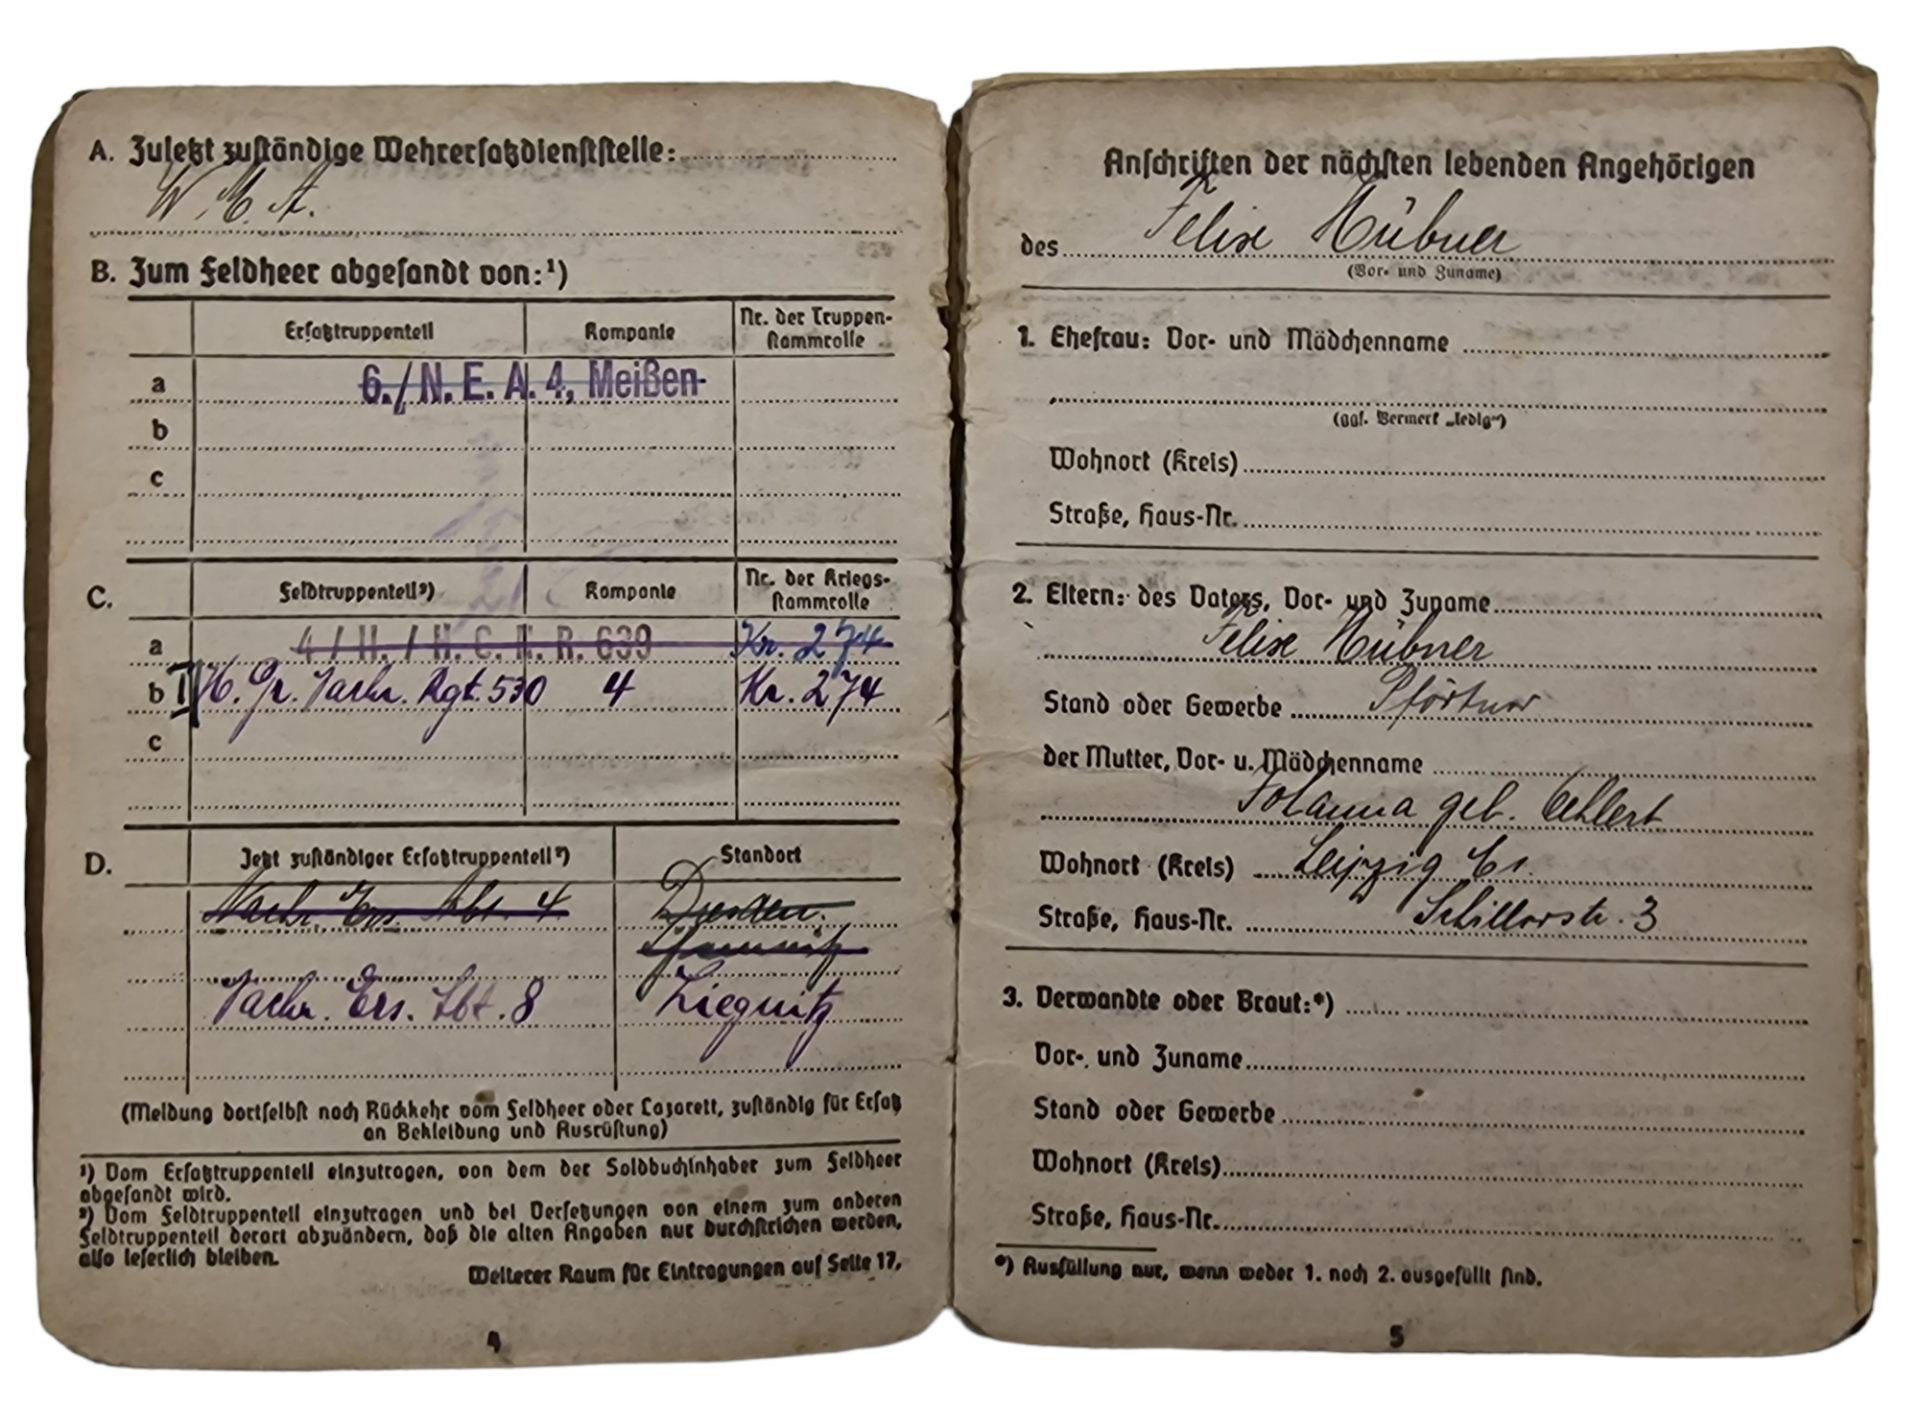 A. Zuletzt zuständige Wehrersatzdienststelle:
W. M. A.
B. Zum Feldheer abgesandt von:¹)
Ersatztruppenteil Kompanie Nr. der Truppen-
stammrolle
a 6./N. E. A. 4, Meißen
b
c
C. Feldtruppenteil²) Kompanie Nr. der Kriegs-
stammrolle
a 4 / II. / H. C. N. R. 639 Kr. 274
b II H. Gr. Nachr. Rgt. 530 4 Kr. 274
c
D. Jetzt zuständiger Ersatztruppenteil²) Standort
Nachr. Ers. Abt. 4 Dresden.
Nachr. Ers. Abt. 8 Liegnitz
(Meldung dortselbst nach Rückkehr vom Feldheer oder Lazarett, zuständig für Ersatz
an Bekleidung und Ausrüstung)
¹) Vom Ersatztruppenteil einzutragen, von dem der Soldbuchinhaber zum Feldheer
abgesandt wird.
²) Vom Feldtruppenteil einzutragen und bei Versetzungen von einem zum anderen
Feldtruppenteil derart abzuändern, daß die alten Angaben nur durchstrichen werden,
also leserlich bleiben.
Weiterer Raum für Eintragungen auf Seite 17.
4
Anschriften der nächsten lebenden Angehörigen
des Felix Hübner
(Vor- und Zuname)
1. Ehefrau: Vor- und Mädchenname
(ggf. Vermerk „ledig“)
Wohnort (Kreis)
Straße, Haus-Nr.
2. Eltern: des Vaters, Vor- und Zuname
Felix Hübner
Stand oder Gewerbe Pförtner
der Mutter, Vor- u. Mädchenname
Johanna geb. Ehlert
Wohnort (Kreis) Leipzig
Straße, Haus-Nr. Schillerstr. 3
3. Verwandte oder Braut:*)
Vor- und Zuname
Stand oder Gewerbe
Wohnort (Kreis)
Straße, Haus-Nr.
*) Ausfüllung nur, wenn weder 1. noch 2. ausgefüllt sind.
5